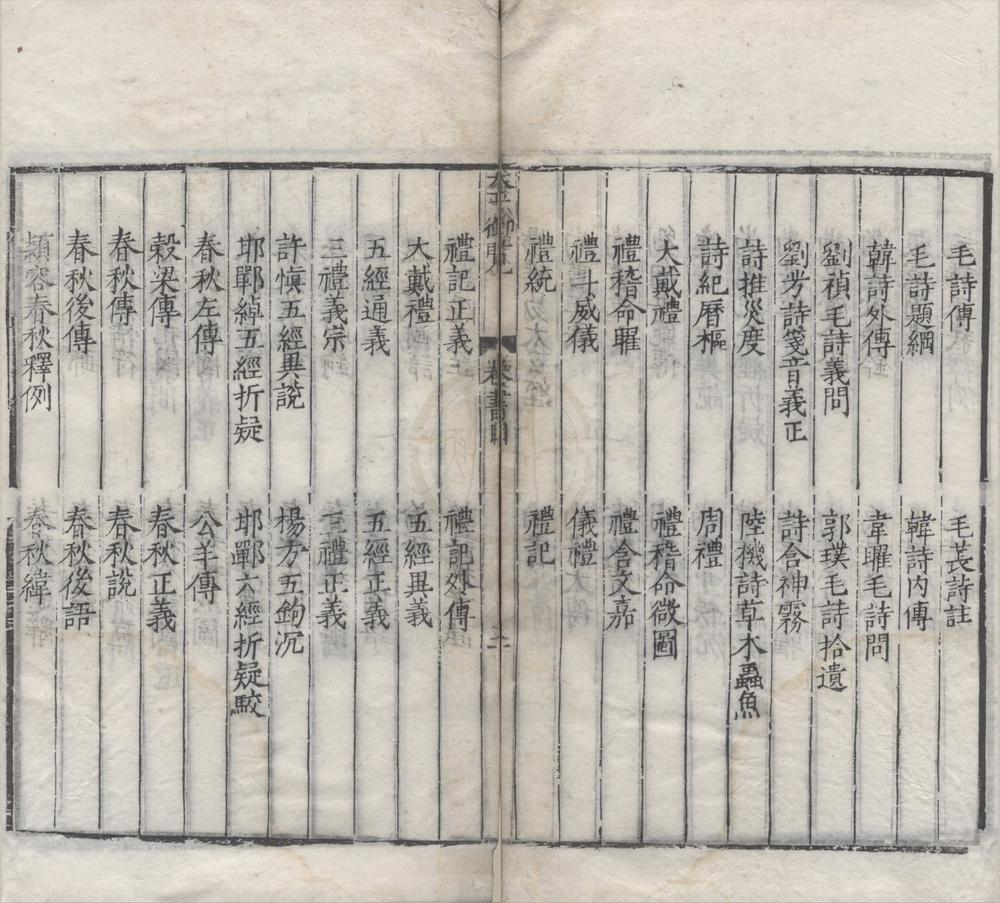 毛詩傳　毛萇詩註
毛詩題綱　韓詩内傳
韓詩外傳　韋曜毛詩問
劉禎毛詩義問　郭璞毛詩拾遺
劉芳詩箋音義正　詩含神霧
詩推災度　陸機詩草木蟲魚
詩紀曆樞　周禮
大戴禮　禮稽命微圖
禮稽命曜　禮含文嘉
禮斗威儀　儀禮
禮統　禮記
太平御覽　卷書目　二
禮記正義　禮記外傳
大戴禮　五經異義
五經通義　五經正義
三禮義宗　三禮正義
許慎五經異説　楊方五鉤沉
邯鄲綽五經折疑　邯鄲六經折疑
春秋左傳　公羊傳
榖梁傳　春秋正義
春秋傳　春秋說
春秋後傳　春秋後語
頴容春秋釋例　春秋緯